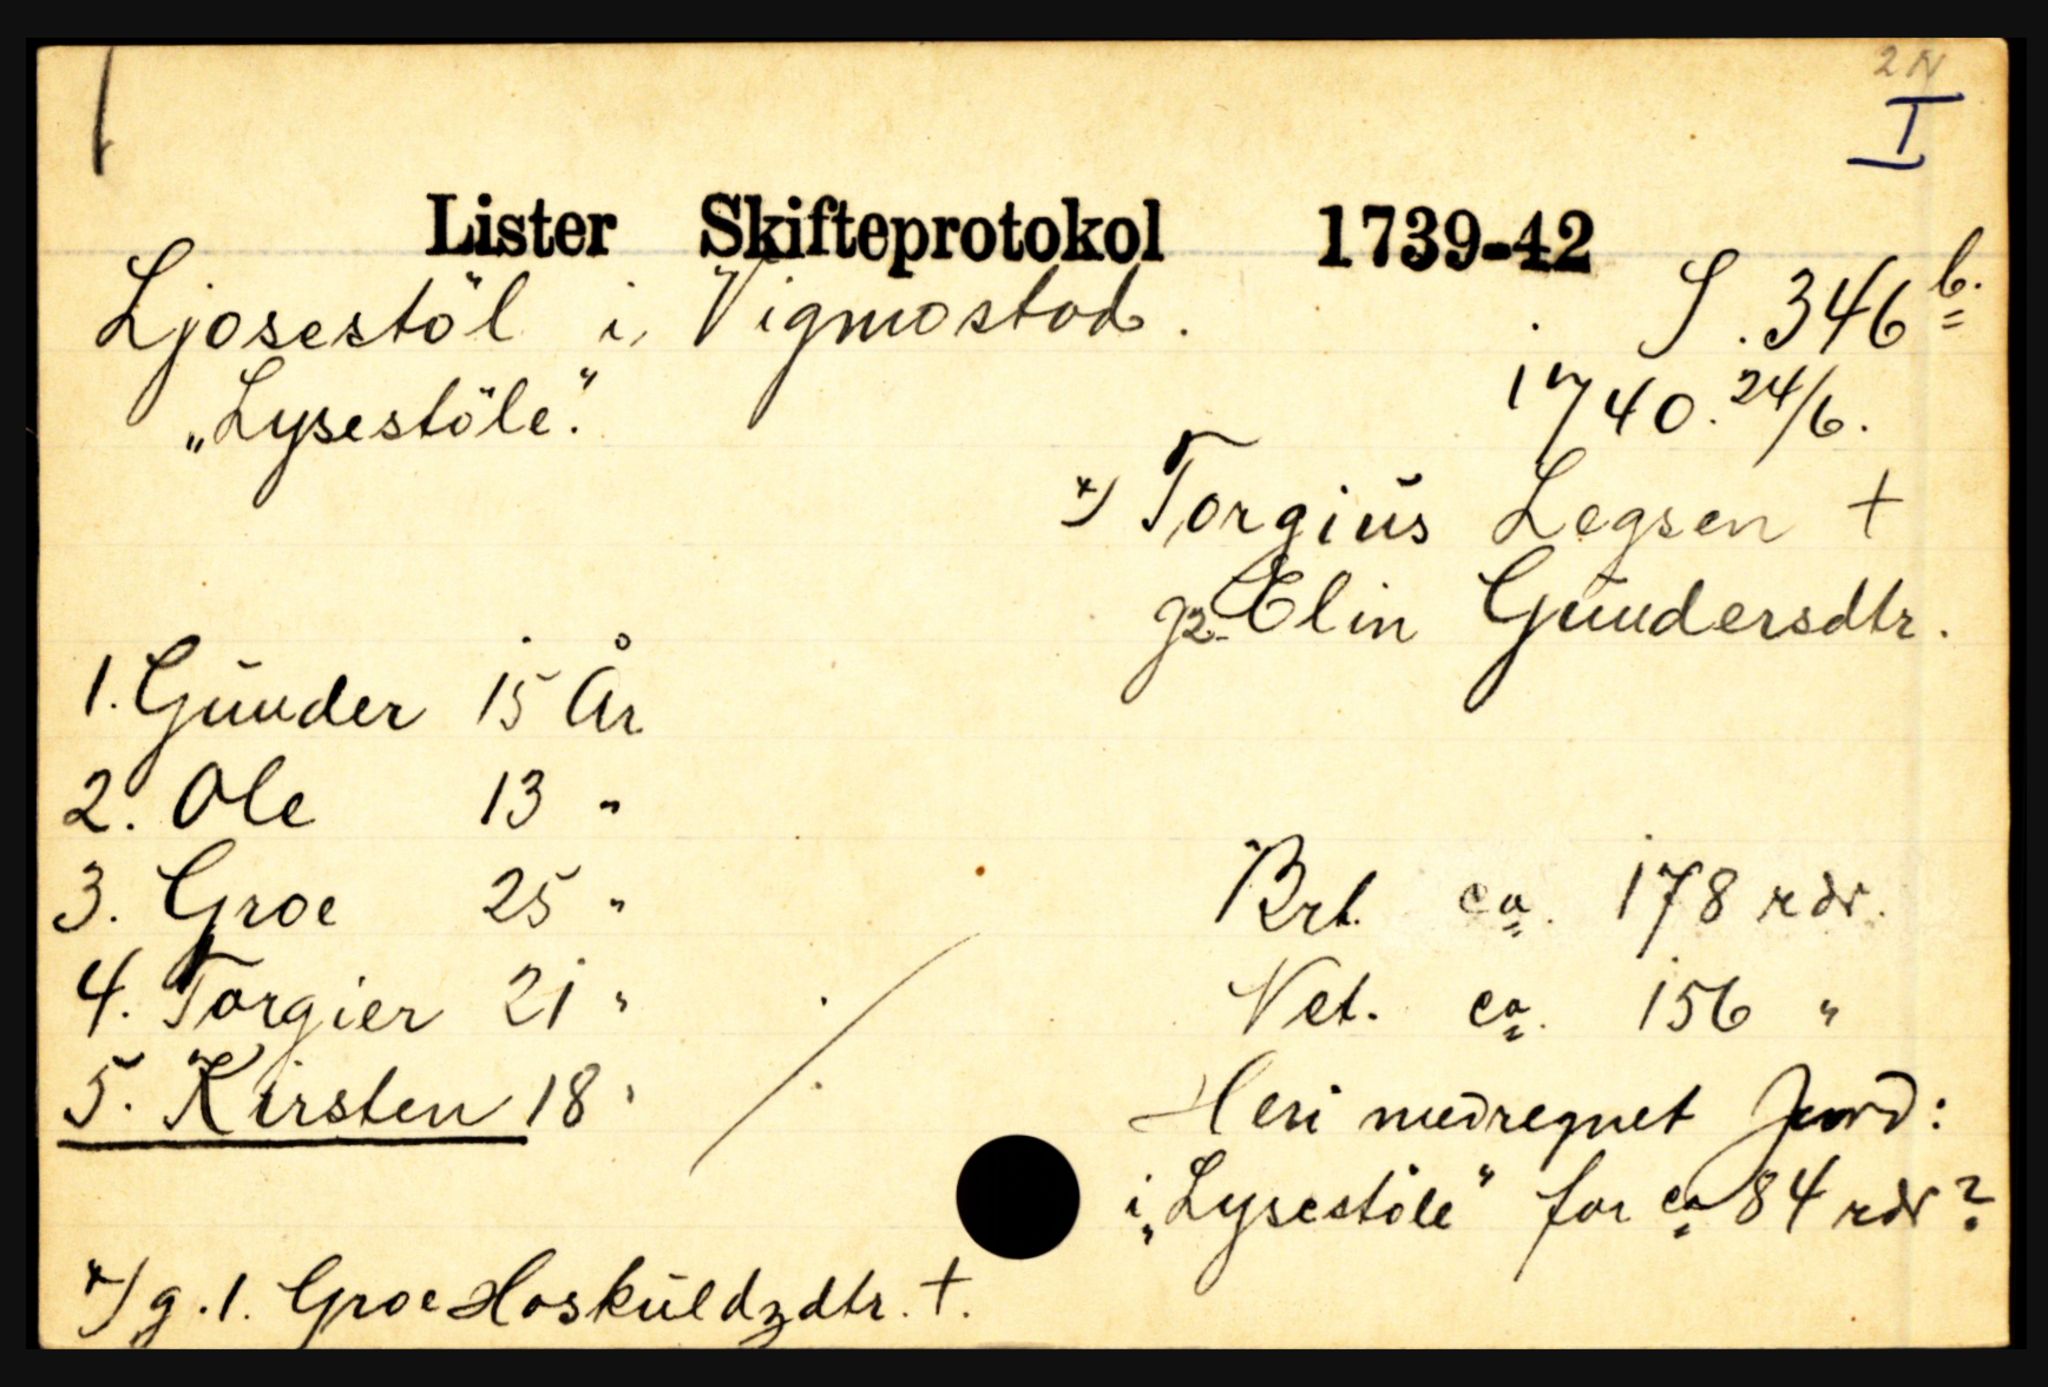 2N
I
Lister Skifteprotokol 1739-42
Ljosestöl i Vigmostad. S. 346 b.
„Lysestöle“. 1740. 24/6.
*) Torgiŭs Legsen +
g2. Elin Gŭndersdtr.
1. Gŭnder 15 År
2. Ole 13 "
3. Groe 25 "
4. Torgier 21 "
5. Kirsten 18 "
Brt. ca. 178 rdr.
Net. ca. 156 "
Heri medregnet Jord:
i „Lysestöle“ for ca 84 rdr?
*) g.1. Groe Hoskŭldzdtr. +.